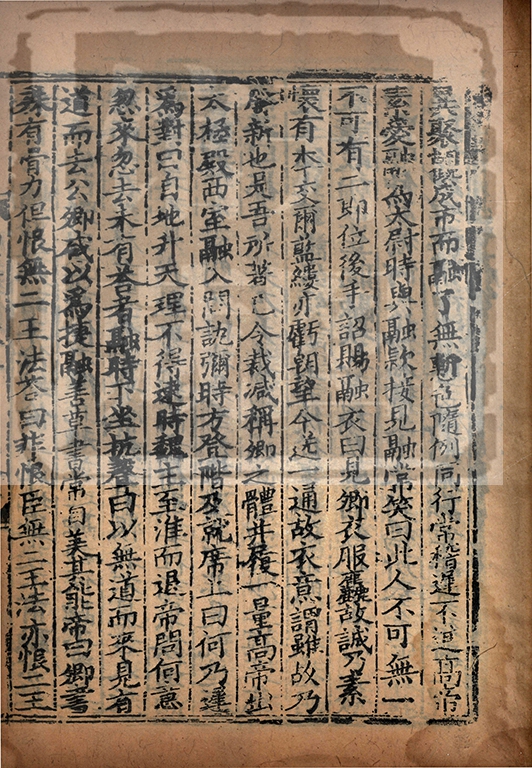 異聚觀成市而融了無慙色隨例同行常稽遲不進高帝
素愛融爲太尉時與融款接見融常笑曰此人不可無一
不可有二即位後手詔賜融衣曰見卿衣服麤故誠乃素
懷有本交爾藍縷亦虧朝望今送一通故衣意謂雖故乃
勝新也是吾所著已令裁減稱卿之體并履一量高帝出
太極殿西室融入問訊彌時方登階及就席上曰何乃遲
爲對曰自地升天理不得速時魏主至淮而退帝問何意
忽來忽去未有荅者融時下坐抗聲曰以無道而來見有
道而去公卿咸以爲捷融善草書常自美其能帝曰卿書
殊有骨力但恨無二王法荅曰非恨臣無二王法亦恨二王